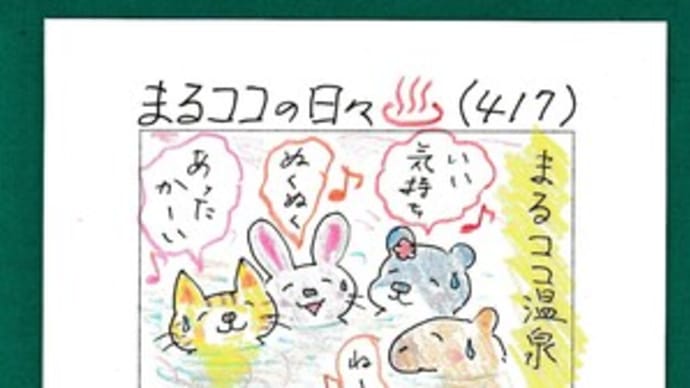 まるココの日々♨(417)
まるココ温泉
いい
気持ち
ぬくぬく
あった
かーい
ねー